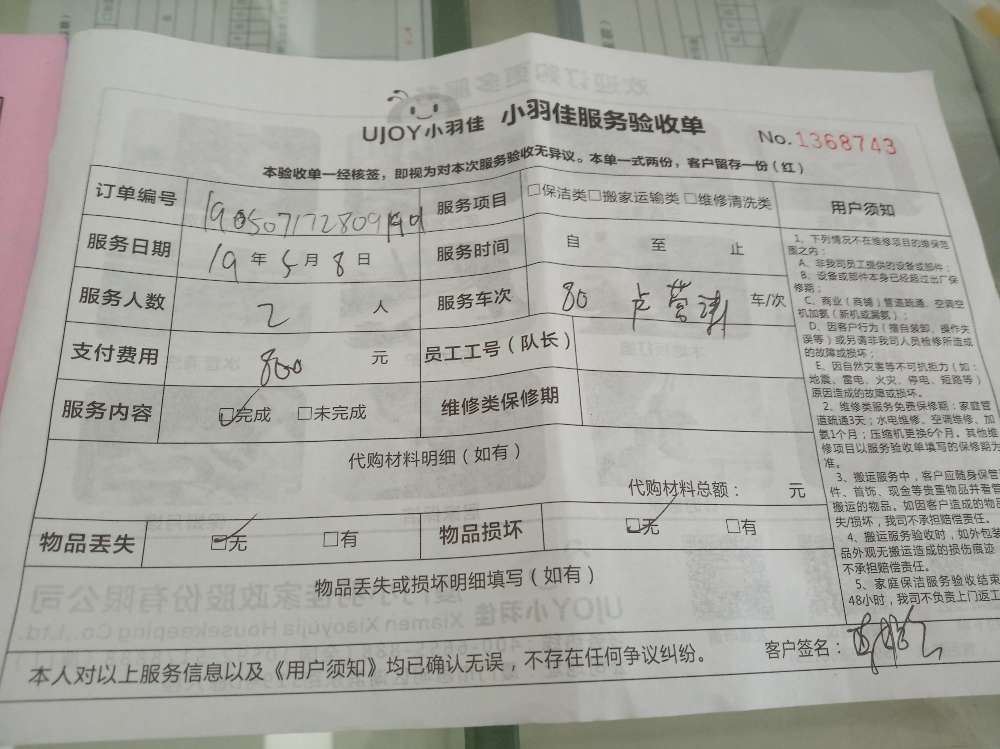 UJOY小羽佳 小羽佳服务验收单 No.1368743
本验收单一经核签，即视为对本次服务验收无异议。本单一式两份，客户留存一份（红）
订单编号 服务项目 □保洁类□搬家运输类□维修清洗类 用户须知
服务日期 19年5月8日 服务时间 自 至 止
服务人数 2 人 服务车次 80 车/次
支付费用 800 元 员工工号（队长）
服务内容 □完成 □未完成 维修类保修期
代购材料明细（如有）
代购材料总额： 元
物品丢失 □无 □有 物品损坏 □无 □有
物品丢失或损坏明细填写（如有）
本人对以上服务信息以及《用户须知》均已确认无误，不存在任何争议纠纷。 客户签名：
1、下列情况不在维修项目的维保范
围之内：
A、非我司员工提供的设备或部件；
B、设备或部件本身已经超过出厂保
修期；
C、商业（商铺）管道疏通、空调空
机加氨（新机或漏氨）；
D、因客户行为（擅自装卸、操作失
误等）或另请非我司人员检修所造成
的故障或损坏；
E、因自然灾害等不可抗拒力（如：
地震、雷电、火灾、停电、短路等）
原因造成的故障或损坏。
2、维修类服务免费保修期：家庭管
道疏通3天；水电维修、空调维修、加
氨1个月；压缩机更换6个月。其他维
修项目以服务验收单填写的保修期为
准。
3、搬运服务中，客户应随身保管
件、首饰、现金等贵重物品并看管
搬运的物品。如因客户造成的物品
失/损坏，我司不承担赔偿责任。
4、搬运服务验收时，如外包装
品外观无搬运造成的损伤痕迹
不承担赔偿责任。
5、家庭保洁服务验收结束
48小时，我司不负责上门返工